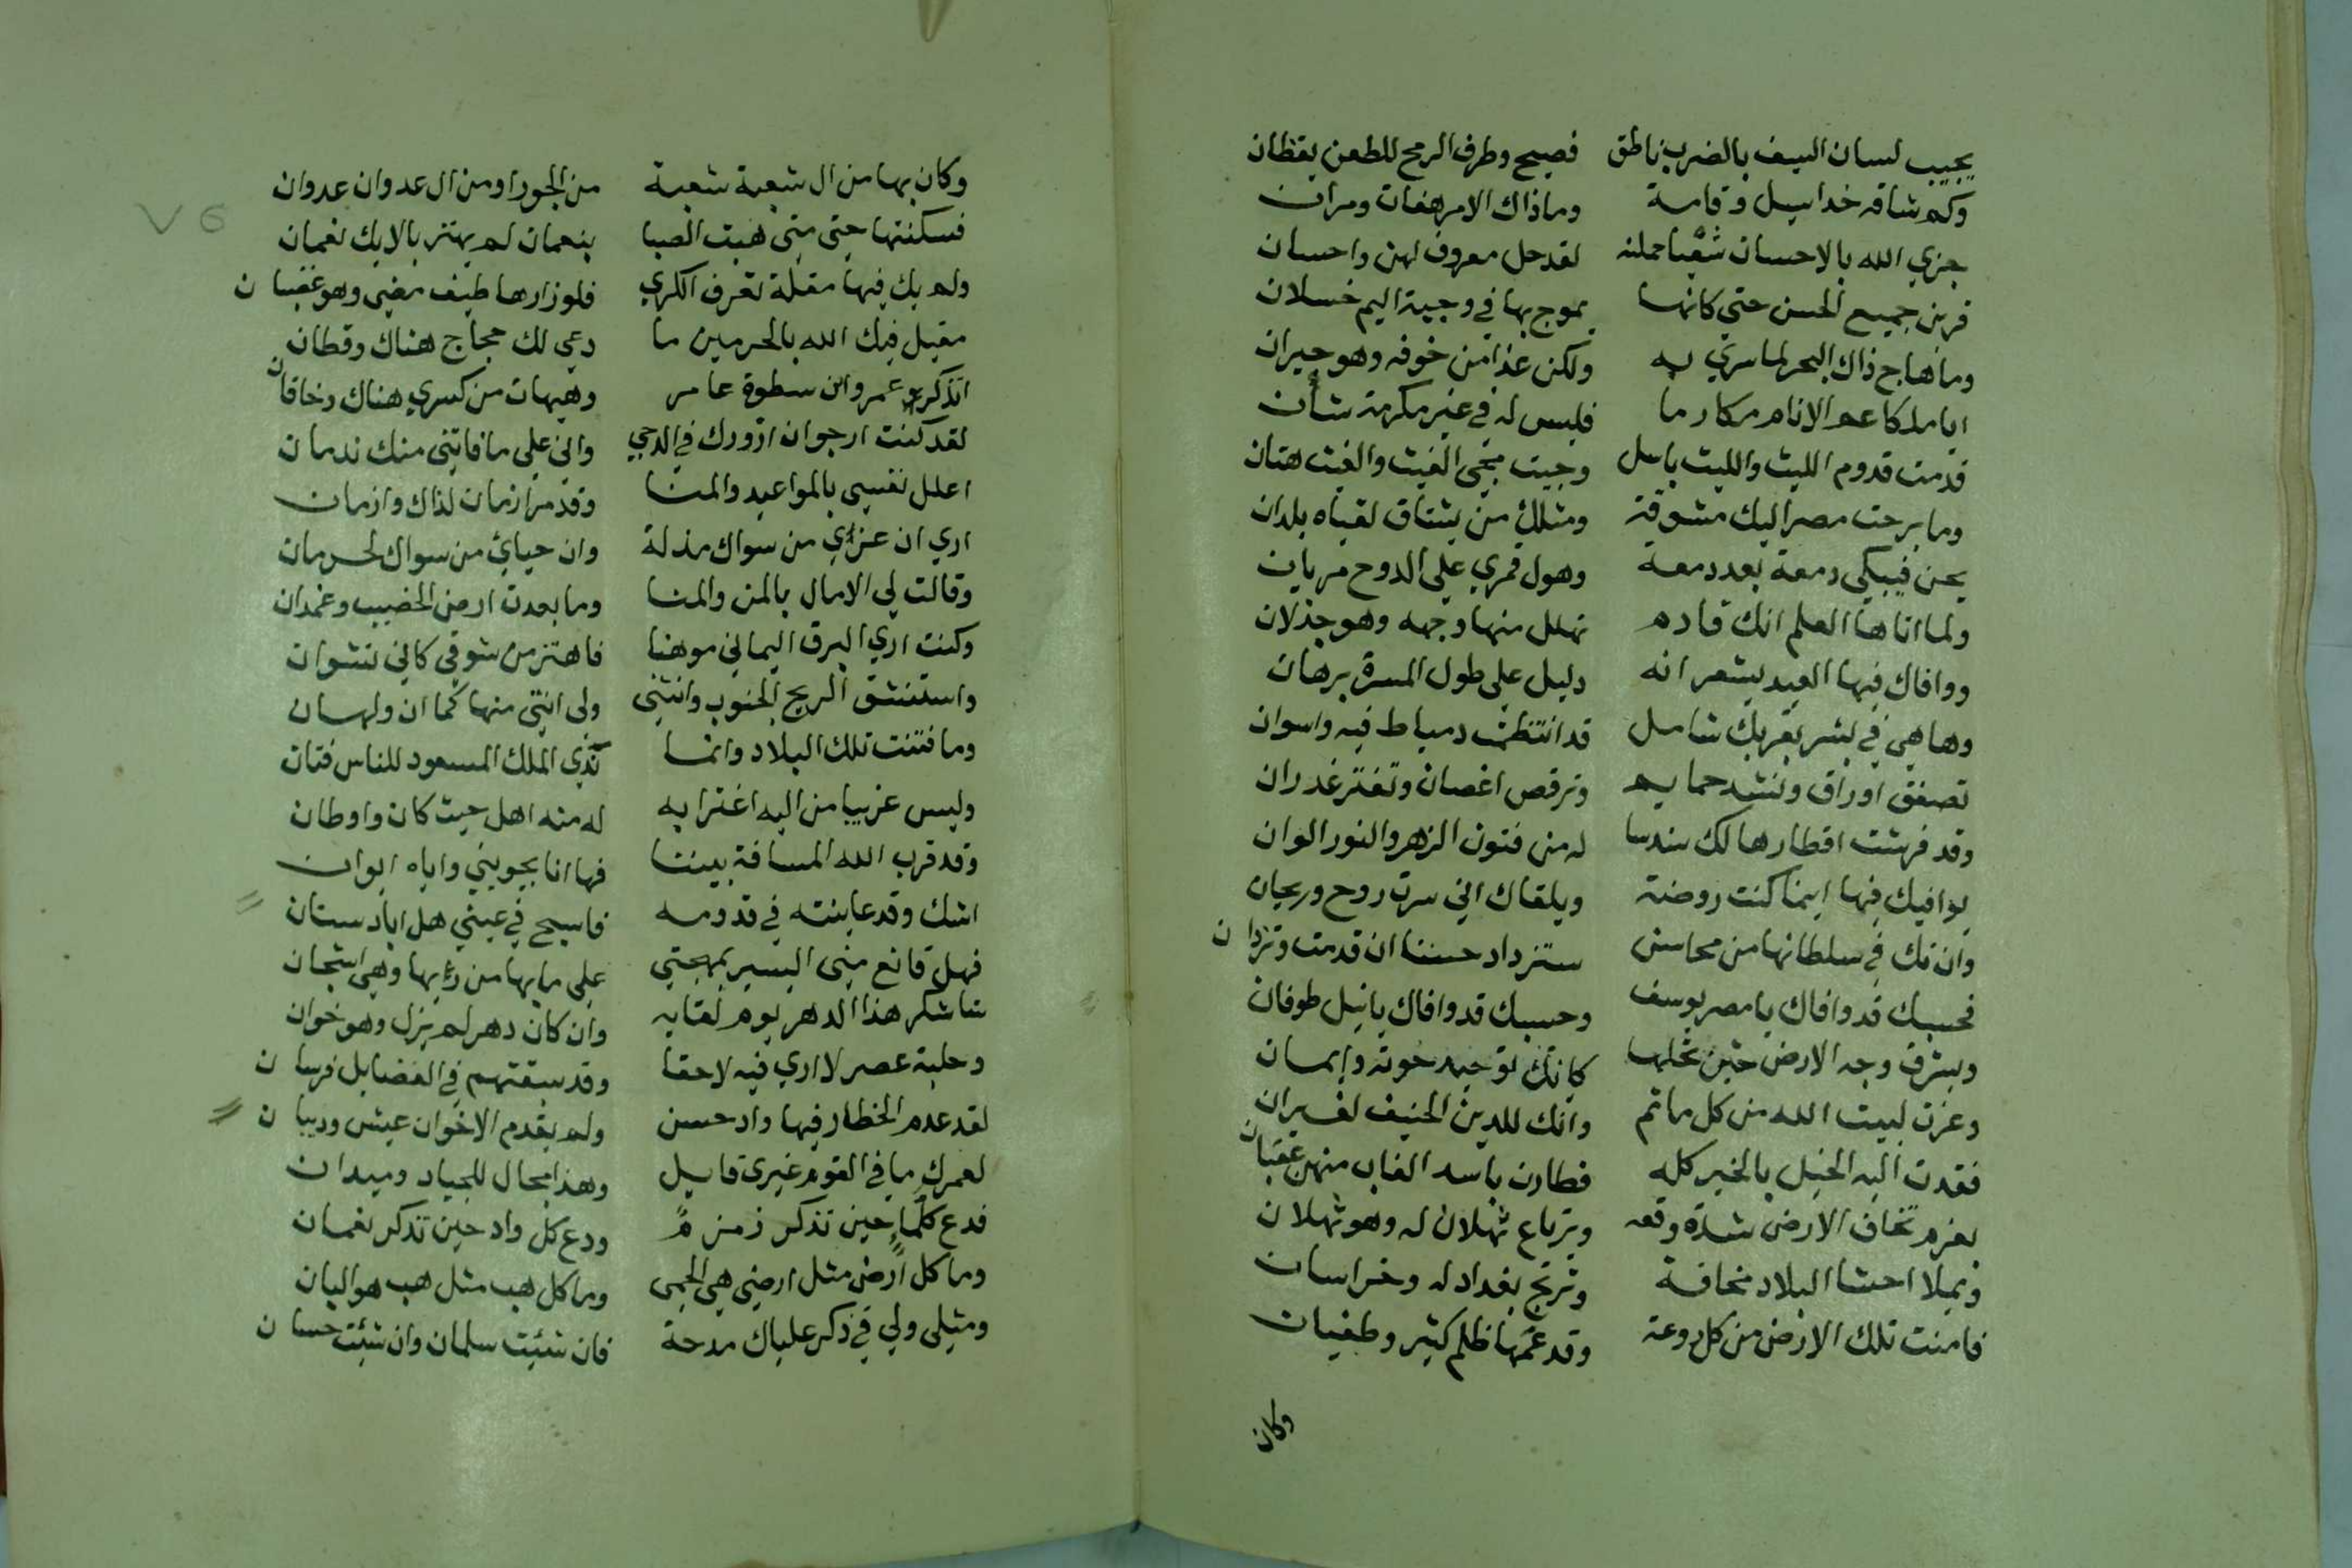 يجيب لسان السيف بالضرب ناطق فصيح وطرف الرمح للطعن يقظان
وكم شاقه خد اسيل وقامة وما ذاك الا مرهفات ومران
جزي الله بالاحسان سفنا حملنه لقد حل معروف لهن واحسان
قرين جميع الحسن حتي كانها يموج بها في وجبة اليم خسلان
وما هاج ذاك البحر لما سري به ولكن غدا من خوفه وهو حيران
ايا ملكا عم الانام مكارما فليس له في غير مكرمة شأن
قدمت قدوم الليث والليث باسل وجيت مجي الغيث والغيث هتان
وما برحت مصر اليك مشوقة ومثلك من يشتاق لقياه بلدان
يحن فيبكي دمعة بعد دمعة وهول قمري علي الدوح مريان
ولما اتاها العلم انك قادم تهلل منها وجهه وهو جذلان
ووافاك فيها العيد يشعر انه دليل علي طول المسرة برهان
وها هي في بشر بقربك شامل قد انتظمت دمياط فيه واسوان
تصفق اوراق وتنشد حمايم وترقص اغصان وتفتر غدران
وقد فرشت اقطارها لك سندسا له من فنون الزهر والنور الوان
يوافيك فيها اينما كنت روضة ويلقاك اني سرت روح وريحان
وان تك في سلطانها من محاسن ستزداد حسنا ان قدمت وتزدان
فحسبك قد وافاك يا مصر يوسف وحسبك قد وافاك يا نيل طوفان
ويشرق وجه الارض حين تحلها كانك توحيد حوته وايمان
وغرت لبيت الله من كل ماتم وانك للدين الحنيف لغيران
فقدت اليه الخيل بالخير كله فطارت باسد الغاب منهن عقبان
بعزم تخاف الارض شدة وقعه ويرتاع ثهلان له وهو ثهلان
ويملا احشا البلاد مخافة وترتج بغداد له وخراسان
فامنت تلك الارض من كل روعة وقد عمها ظلم كثير وطغيان
وكان
٧٥
وكان بها من ال شعبة شعبة من الجور او من ال عدوان عدوان
فسكنتها حتي متي هبت الصبا بنعمان لم يهتز بالايك نعمان
ولم يك فيها مقلة تعرف الكري فلو زارها طيف مضي وهو غضبان
مقبل فيك الله بالحرمين ما دعي لك حجاج هناك وقطان
اتذكر عمرو ابن سطوة عامر وهيهات من كسري هناك وخاقان
لقد كنت ارجو ان ازورك في الدجي واني علي ما فاتني منك ندمان
اعلل نفسي بالمواعيد والمنا وقد مر ازمان لذاك وازمان
اري ان عزاي من سواك مذلة وان حياي من سواك لحرمان
وقالت لي الامال بالمن والمنا وما بعدت ارض الخصيب وغمدان
وكنت اري البرق اليماني موهنا فاهتز من شوقي كاني نشوان
واستنشق الريح الجنوب وانثني ولي انتي منها كما ان ولهان
وما فتنت تلك البلاد وانما تذي الملك المسعود للناس فتان
وليس غريبا من اليه اغترابه له منه اهل حيث كان واوطان
وقد قرب الله المسافة بيننا فها انا يحويني واياه ايوان
اشك وقد عاينته في قدومه فاسيح في عيني هل اياد ستان
فهل قانع مني البشير بمهجتي علي ما بها من دايها وهي اشجان
ساشكر هذا الدهر يوم لقايه وان كان دهر لم يزل وهو خوان
وحلبة عصر لا اري فيه لاحقا وقد سبقتهم في الفضايل فرسان
لقد عدم الخطار فيها واد حسن ولم يقدم الاخوان عبس وذبيان
لعمرك ما في القوم غيرى قايل وهذا مجال للجياد وميدان
فدع كلما حين تذكر زمزم ودع كل واد حين تذكر نعمان
وما كل ارض مثل ارضي هي الحمي وما كل هب مثل هب هو البان
ومثلي ولي في ذكر علياك مدحة فان شئت سلمان وان شئت حسان